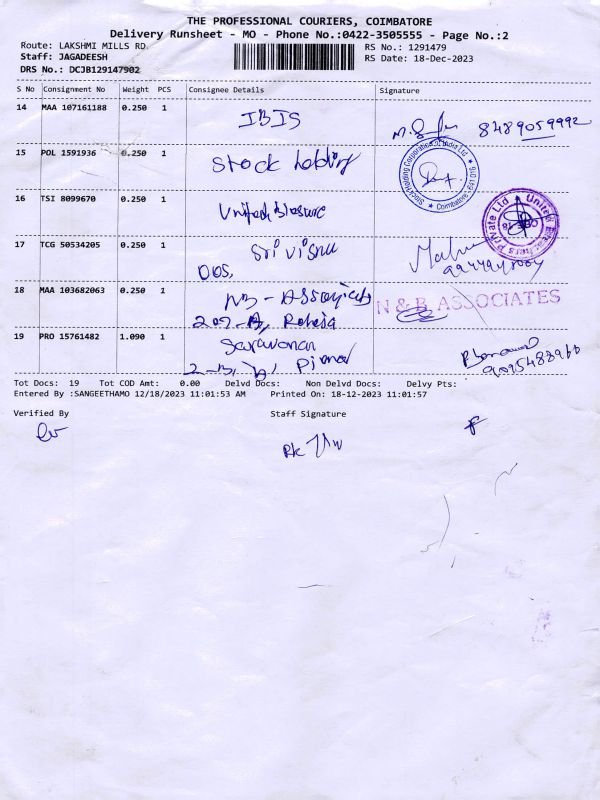 THE PROFESSIONAL COURIERS, COIMBATORE
Delivery Runsheet - MO - Phone No.:0422-3505555 - Page No.:2
Route: LAKSHMI MILLS RD.
RS No.: 1291479
Staff: JAGADEESH
RS Date: 18-Dec-2023
DRS No.: DCJB129147902
S No Consignment No Weight PCS Consignee Details Signature
14 MAA 107161188 0.250 1 IBIS 8489059992
15 POL 1591936 0.250 1 Stock holding
Stock Holding Corporation of India Ltd
Coimbatore
16 TSI 8099670 0.250 1
Private Ltd
17 TCG 50534205 0.250 1 Sri Visnu
18 MAA 103682063 0.250 1 NB-
N & B ASSOCIATES
Raheja
19 PRO 15761482 1.090 1 Saravanan
Tot Docs: 19 Tot COD Amt: 0.00 Delvd Docs: Non Delvd Docs: Delvy Pts:
Entered By :SANGEETHAMO 12/18/2023 11:01:53 AM Printed On: 18-12-2023 11:01:57
Verified By Staff Signature